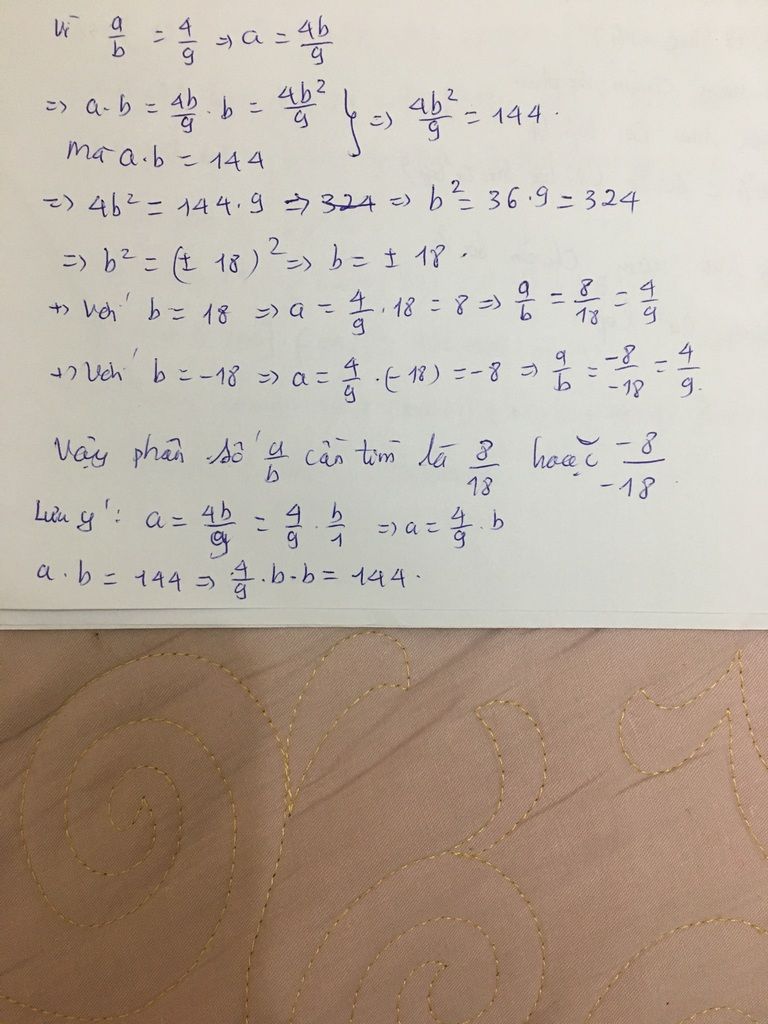 Vì a/b = 4/9 => a = 4b/9
=> a·b = 4b/9 · b = 4b²/9 } => 4b²/9 = 144.
mà a.b = 144
=> 4b² = 144.9 => 324 => b² = 36.9 = 324
=> b² = (± 18)² => b = ± 18.
+> với b = 18 => a = 4/9 . 18 = 8 => a/b = 8/18 = 4/9
+> với b = -18 => a = 4/9 . (-18) = -8 => a/b = -8/-18 = 4/9.
Vậy phân số a/b cần tìm là 8/18 hoặc -8/-18.
Lưu ý: a = 4b/9 = 4/9 . b/1 => a = 4/9 . b
a . b = 144 => 4/9 . b . b = 144.